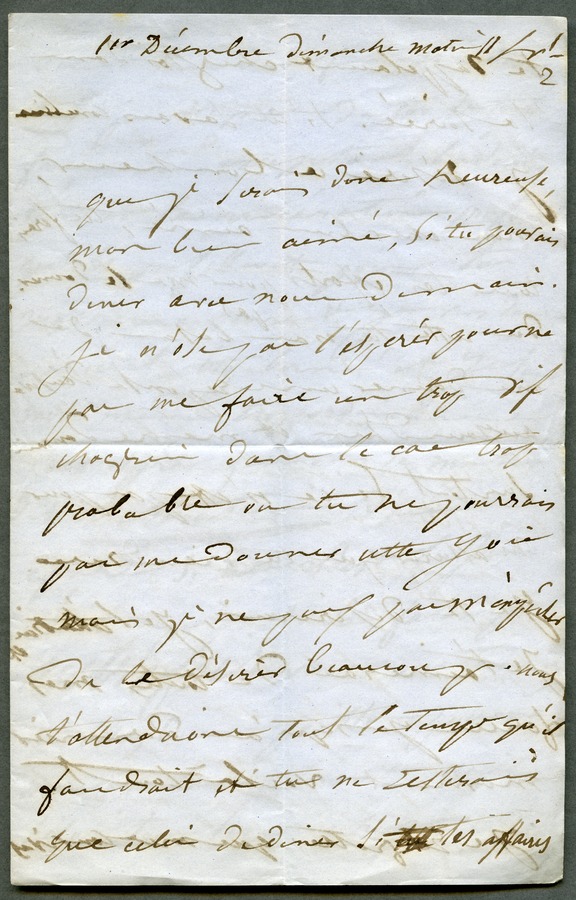 1er Décembre dimanche matin 11 h
2
que je serais donc heureuse,
mon bien aimé, si tu pouvais
diner avec nous Demain.
je n'ose pas l'espérer pour ne
pas me faire un trop vif
chagrin dans le cas trop
probable ou tu ne pourrais
pas me donner cette joie
mais je ne puis pas m'empêcher
de le désirer beaucoup. nous
t'attendrions tout le temps qu'il
faudrait et tu ne resterais
que celui de diner si tes affaires